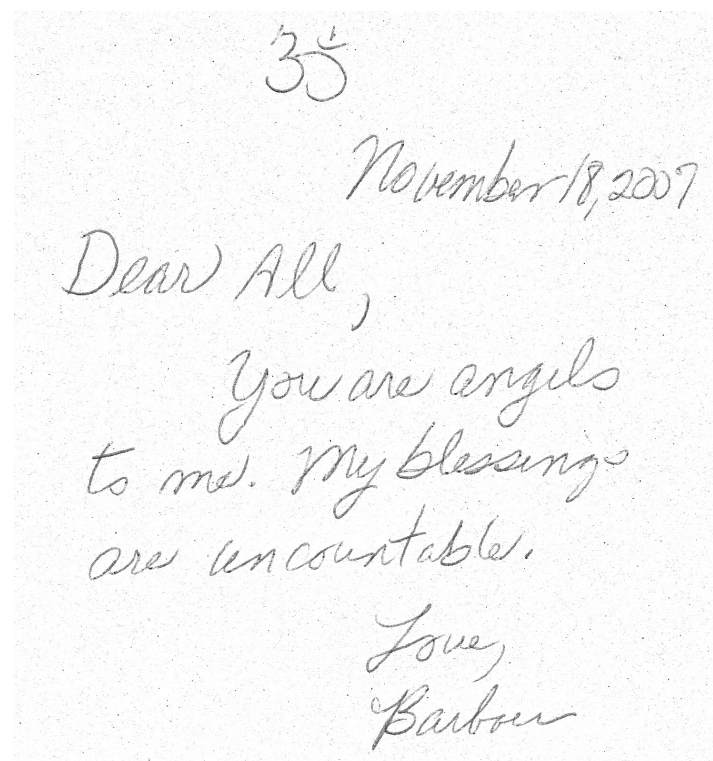 ॐ
November 18, 2007
Dear All,
You are angels
to me. My blessings
are uncountable.
Love,